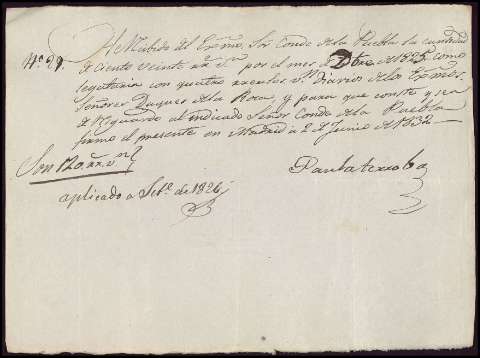 Nº 29.
He Recibido del Exmo. Sor. Conde de la Puebla la cantidad
de ciento veinte rs. vn. por el mes de Dbre de 1825, como
legataria con quatro reales vn. diarios de los Exmos.
Señores Duques de la Roca; y para que conste y sea
de resguardo al indicado Señor Conde de la Puebla
firmo el presente en Madrid a 2 de Junio de 1832
Son 120 rs. vn.
aplicado a Sete. de 1826